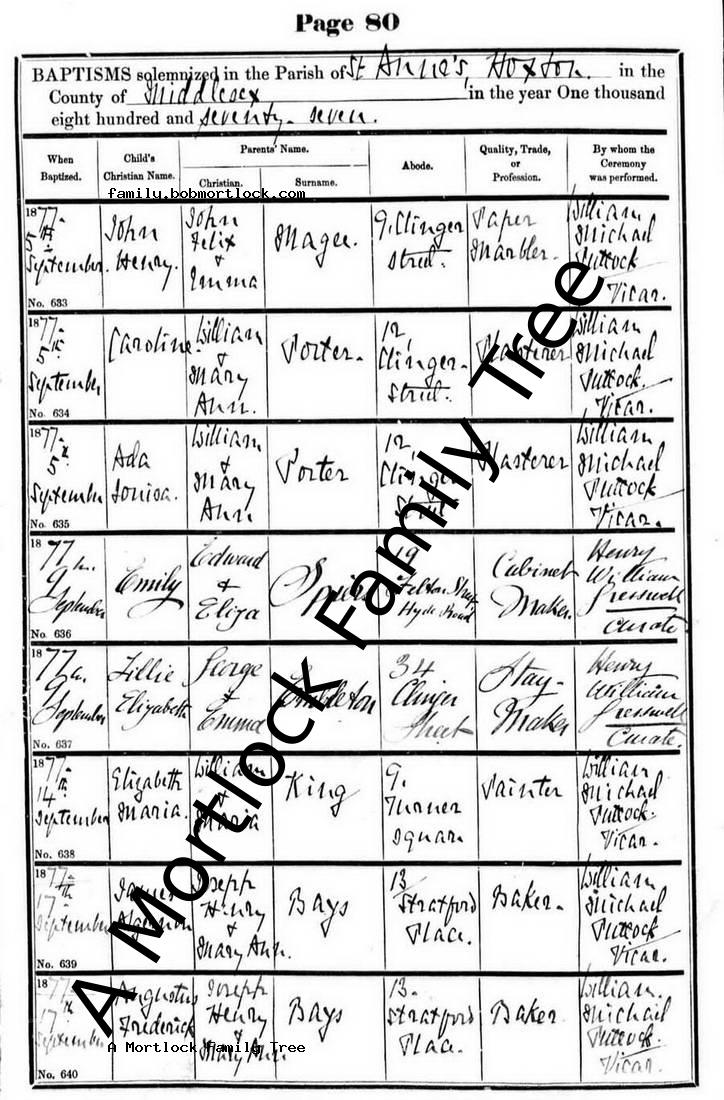 Page 80
BAPTISMS solemnized in the Parish of St Anne's, Hoxton. in the
County of Middlesex in the year One thousand
eight hundred and seventy-seven.
When Baptized.
Child's Christian Name.
Parents' Name.
Christian.
Surname.
Abode.
Quality, Trade, or Profession.
By whom the Ceremony was performed.
family.bobmortlock.com
1877-
5th
September.
No. 633
John
Henry.
John
Felix
+
Emma
Magee.
9. Clinger
Street.
Paper
Marbler.
William
Michael
Puttock
Vicar.
1877-
5th
September
No. 634
Caroline
William
+
Mary
Ann.
Porter.
12,
Clinger.
Street.
Plasterer
William
Michael
Puttock.
Vicar.
1877-
5th
September
No. 635
Ada
Louisa.
William
+
Mary
Ann
Porter
12,
Clinger
Street
Plasterer
William
Michael
Puttock
Vicar.
1877
9
September
No. 636
Emily
Edward
+
Eliza
19
Felton Street
Hyde Road
Cabinet
Maker.
Henry
William
Cresswell
Curate
1877
9
September
No. 637
Lillie
Elizabeth
George
+
Emma
34
Clinger
Street
Stay-
Maker
Henry
William
Cresswell
Curate.
1877-
14th
September
No. 638
Elizabeth
Maria.
William
+
Maria
King
9.
Turner
Square
Painter
William
Michael
Puttock.
Vicar.
1877-
17th
September
No. 639
James
Algernon
Joseph
Henry
+
Mary Ann.
Bays
13
Stratford
Place.
Baker.
William
Michael
Puttock
Vicar.
1877
17th
September
No. 640
Augustus
Frederick
Joseph
Henry
+
Mary Ann
Bays
13.
Stratford
Place.
Baker.
William
Michael
Puttock.
Vicar.
A Mortlock Family Tree
A Mortlock Family Tree